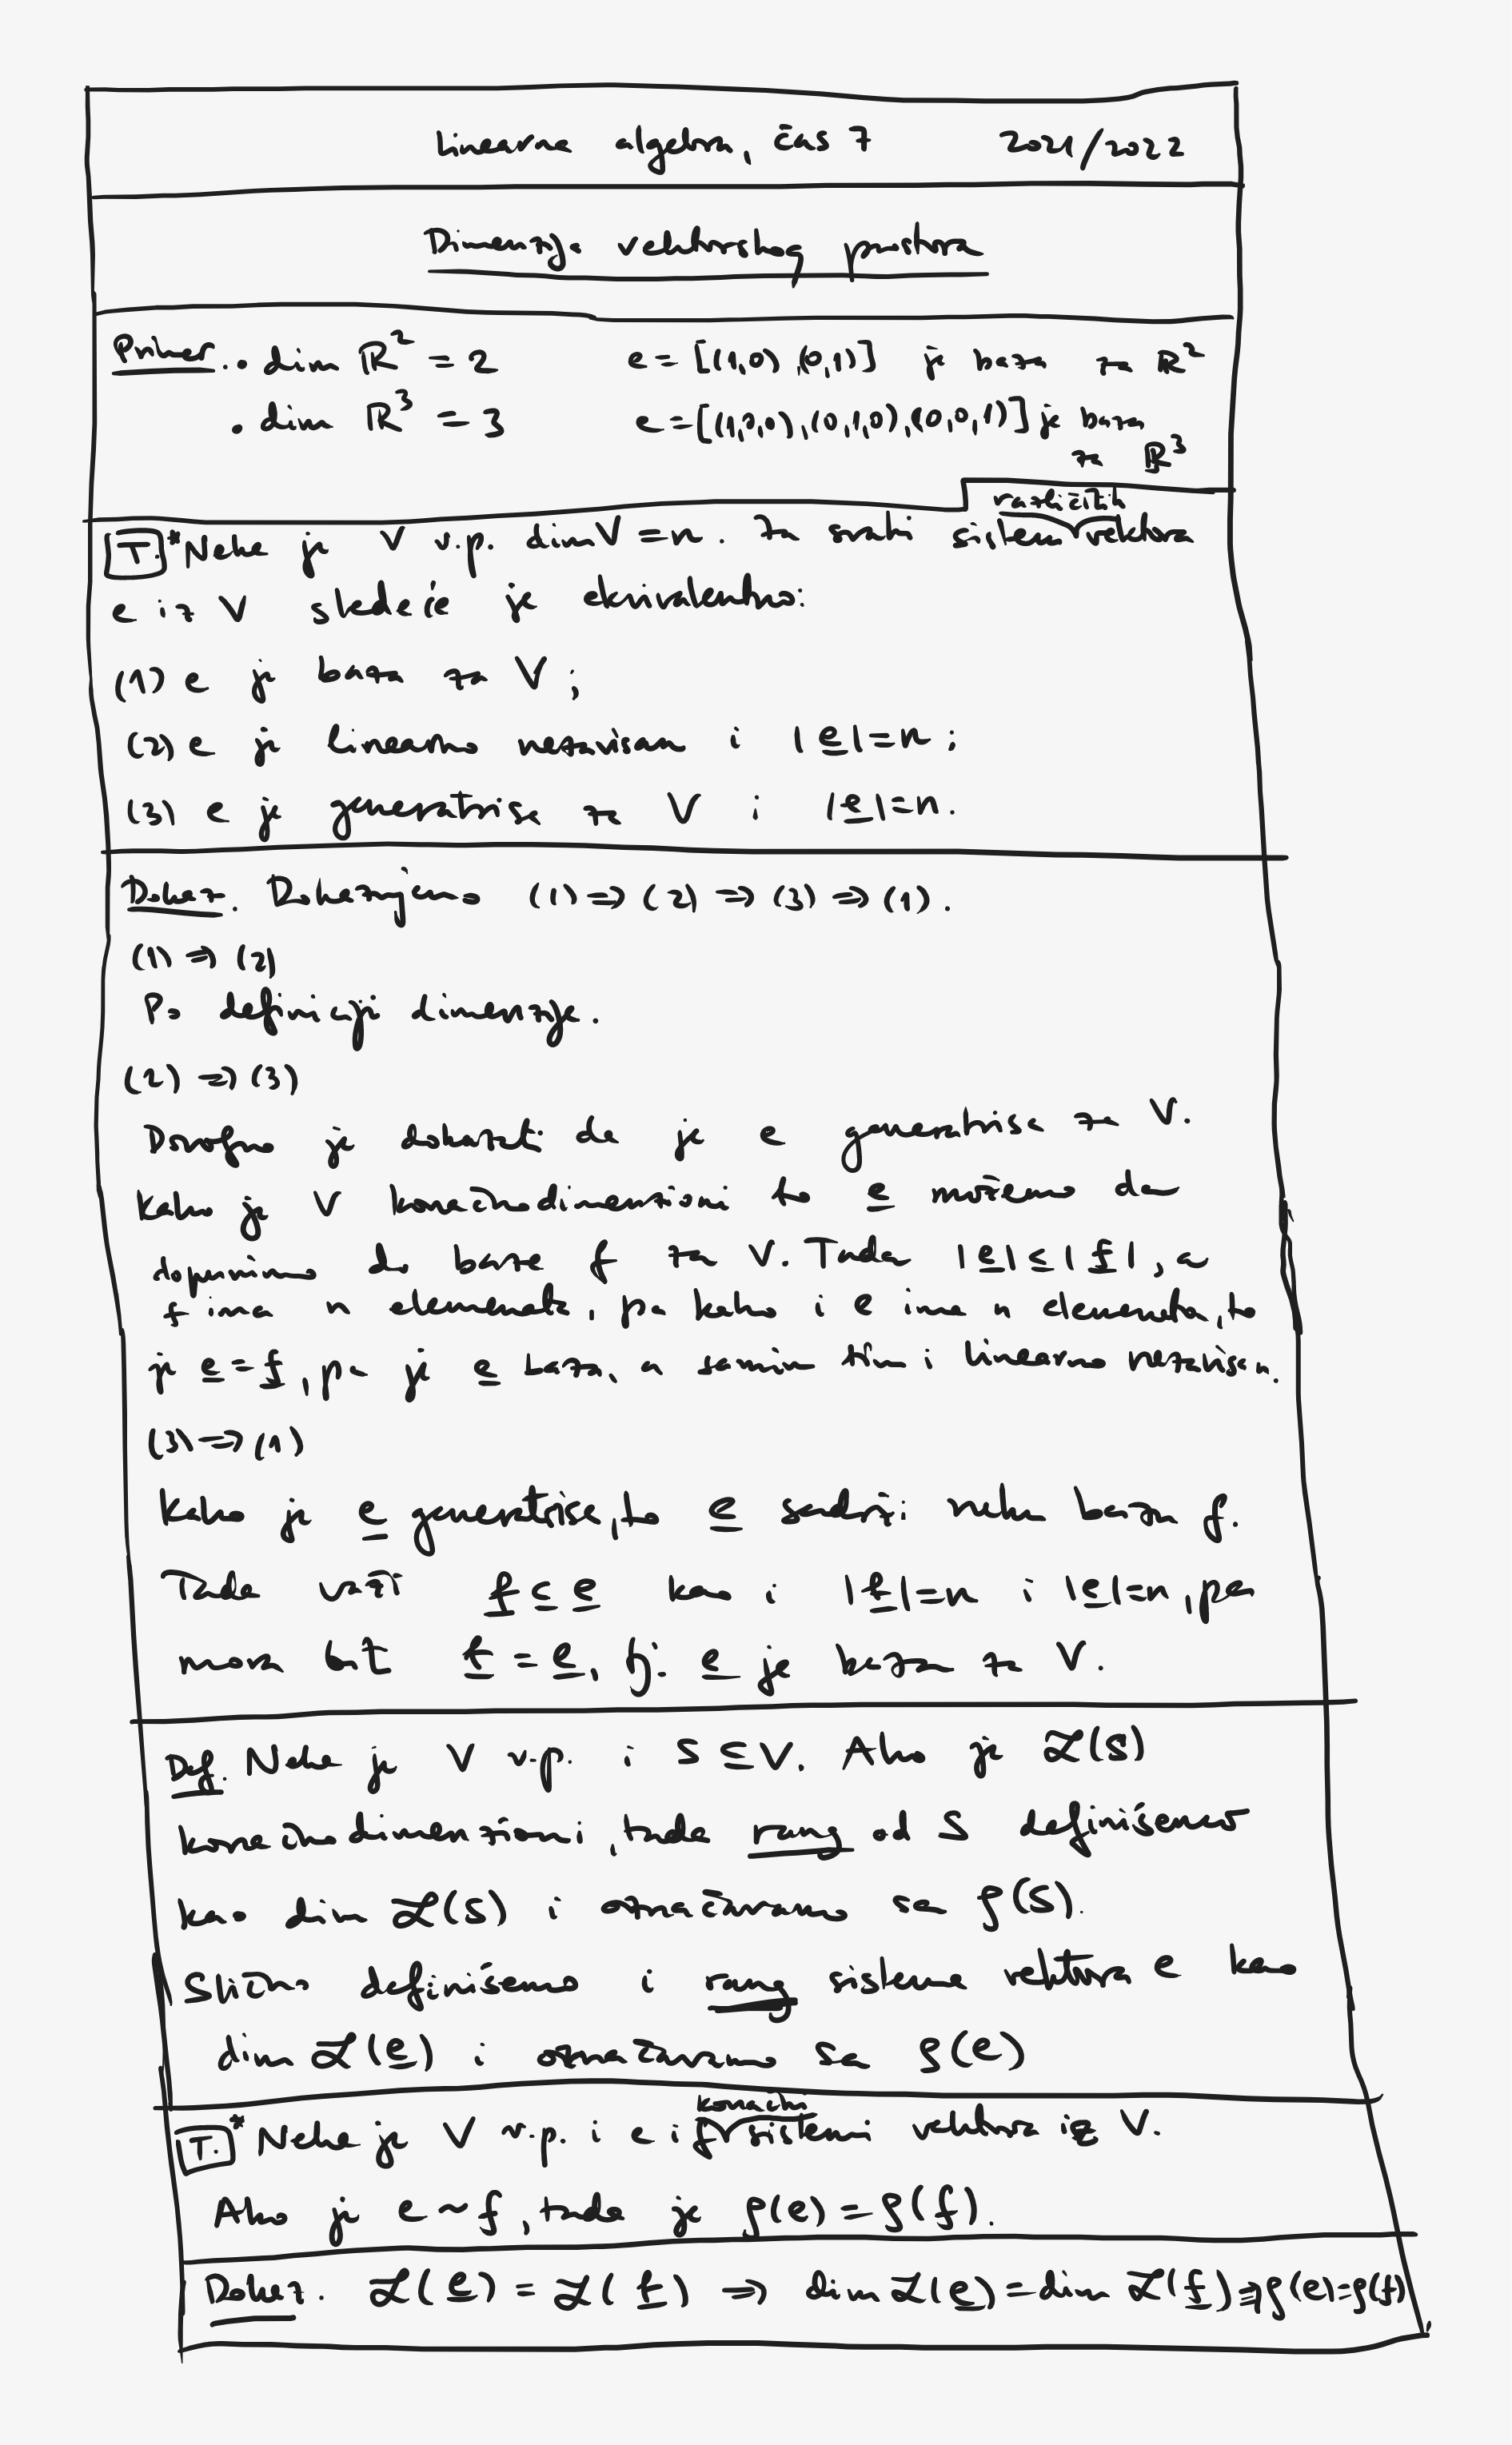 Linearna algebra, čas 7 2021/2022
Dimenzija vektorskog prostora
Primer. • dim ℝ² = 2 e = [(1,0),(0,1)] je baza za ℝ²
• dim ℝ³ = 3 e = [(1,0,0),(0,1,0),(0,0,1)] je baza
za ℝ³
različitih
T.* Neka je V v.p. dim V = n. Za svaki sistem vektora
e iz V sledeće je ekvivalentno:
(1) e je baza za V;
(2) e je linearno nezavisan i |e| = n;
(3) e je generatrisa za V i |e| = n.
Dokaz. Dokazujemo (1) ⇒ (2) ⇒ (3) ⇒ (1).
(1) ⇒ (2)
Po definiciji dimenzije.
(2) ⇒ (3)
Dovoljno je dokazati da je e generatrisa za V.
Kako je V konačnodimenzioni to e možemo da
dopunimo do baze f za V. Tada |e| ≤ |f|, a
f ima n elemenata, pa kako i e ima n elemenata, to
je e = f, pa je e baza, a samim tim i linearno nezavisan.
(3) ⇒ (1)
Kako je e generatrisa, to e sadrži neku bazu f.
Tada važi f ⊆ e kao i |f| = n i |e| = n, pa
mora biti f = e, tj. e je baza za V.
Def. Neka je V v.p. i S ⊆ V. Ako je ℒ(S)
konačnodimenzioni, tada rang od S definišemo
kao dim ℒ(S) i označavamo sa ρ(S).
Slično definišemo i rang sistema vektora e kao
dim ℒ(e) i označavamo sa ρ(e)
konačni
T.* Neka je V v.p. i e i f sistemi vektora iz V.
Ako je e ~ f, tada je ρ(e) = ρ(f).
Dokaz. ℒ(e) = ℒ(f) ⇒ dim ℒ(e) = dim ℒ(f) ⇒ ρ(e) = ρ(f)